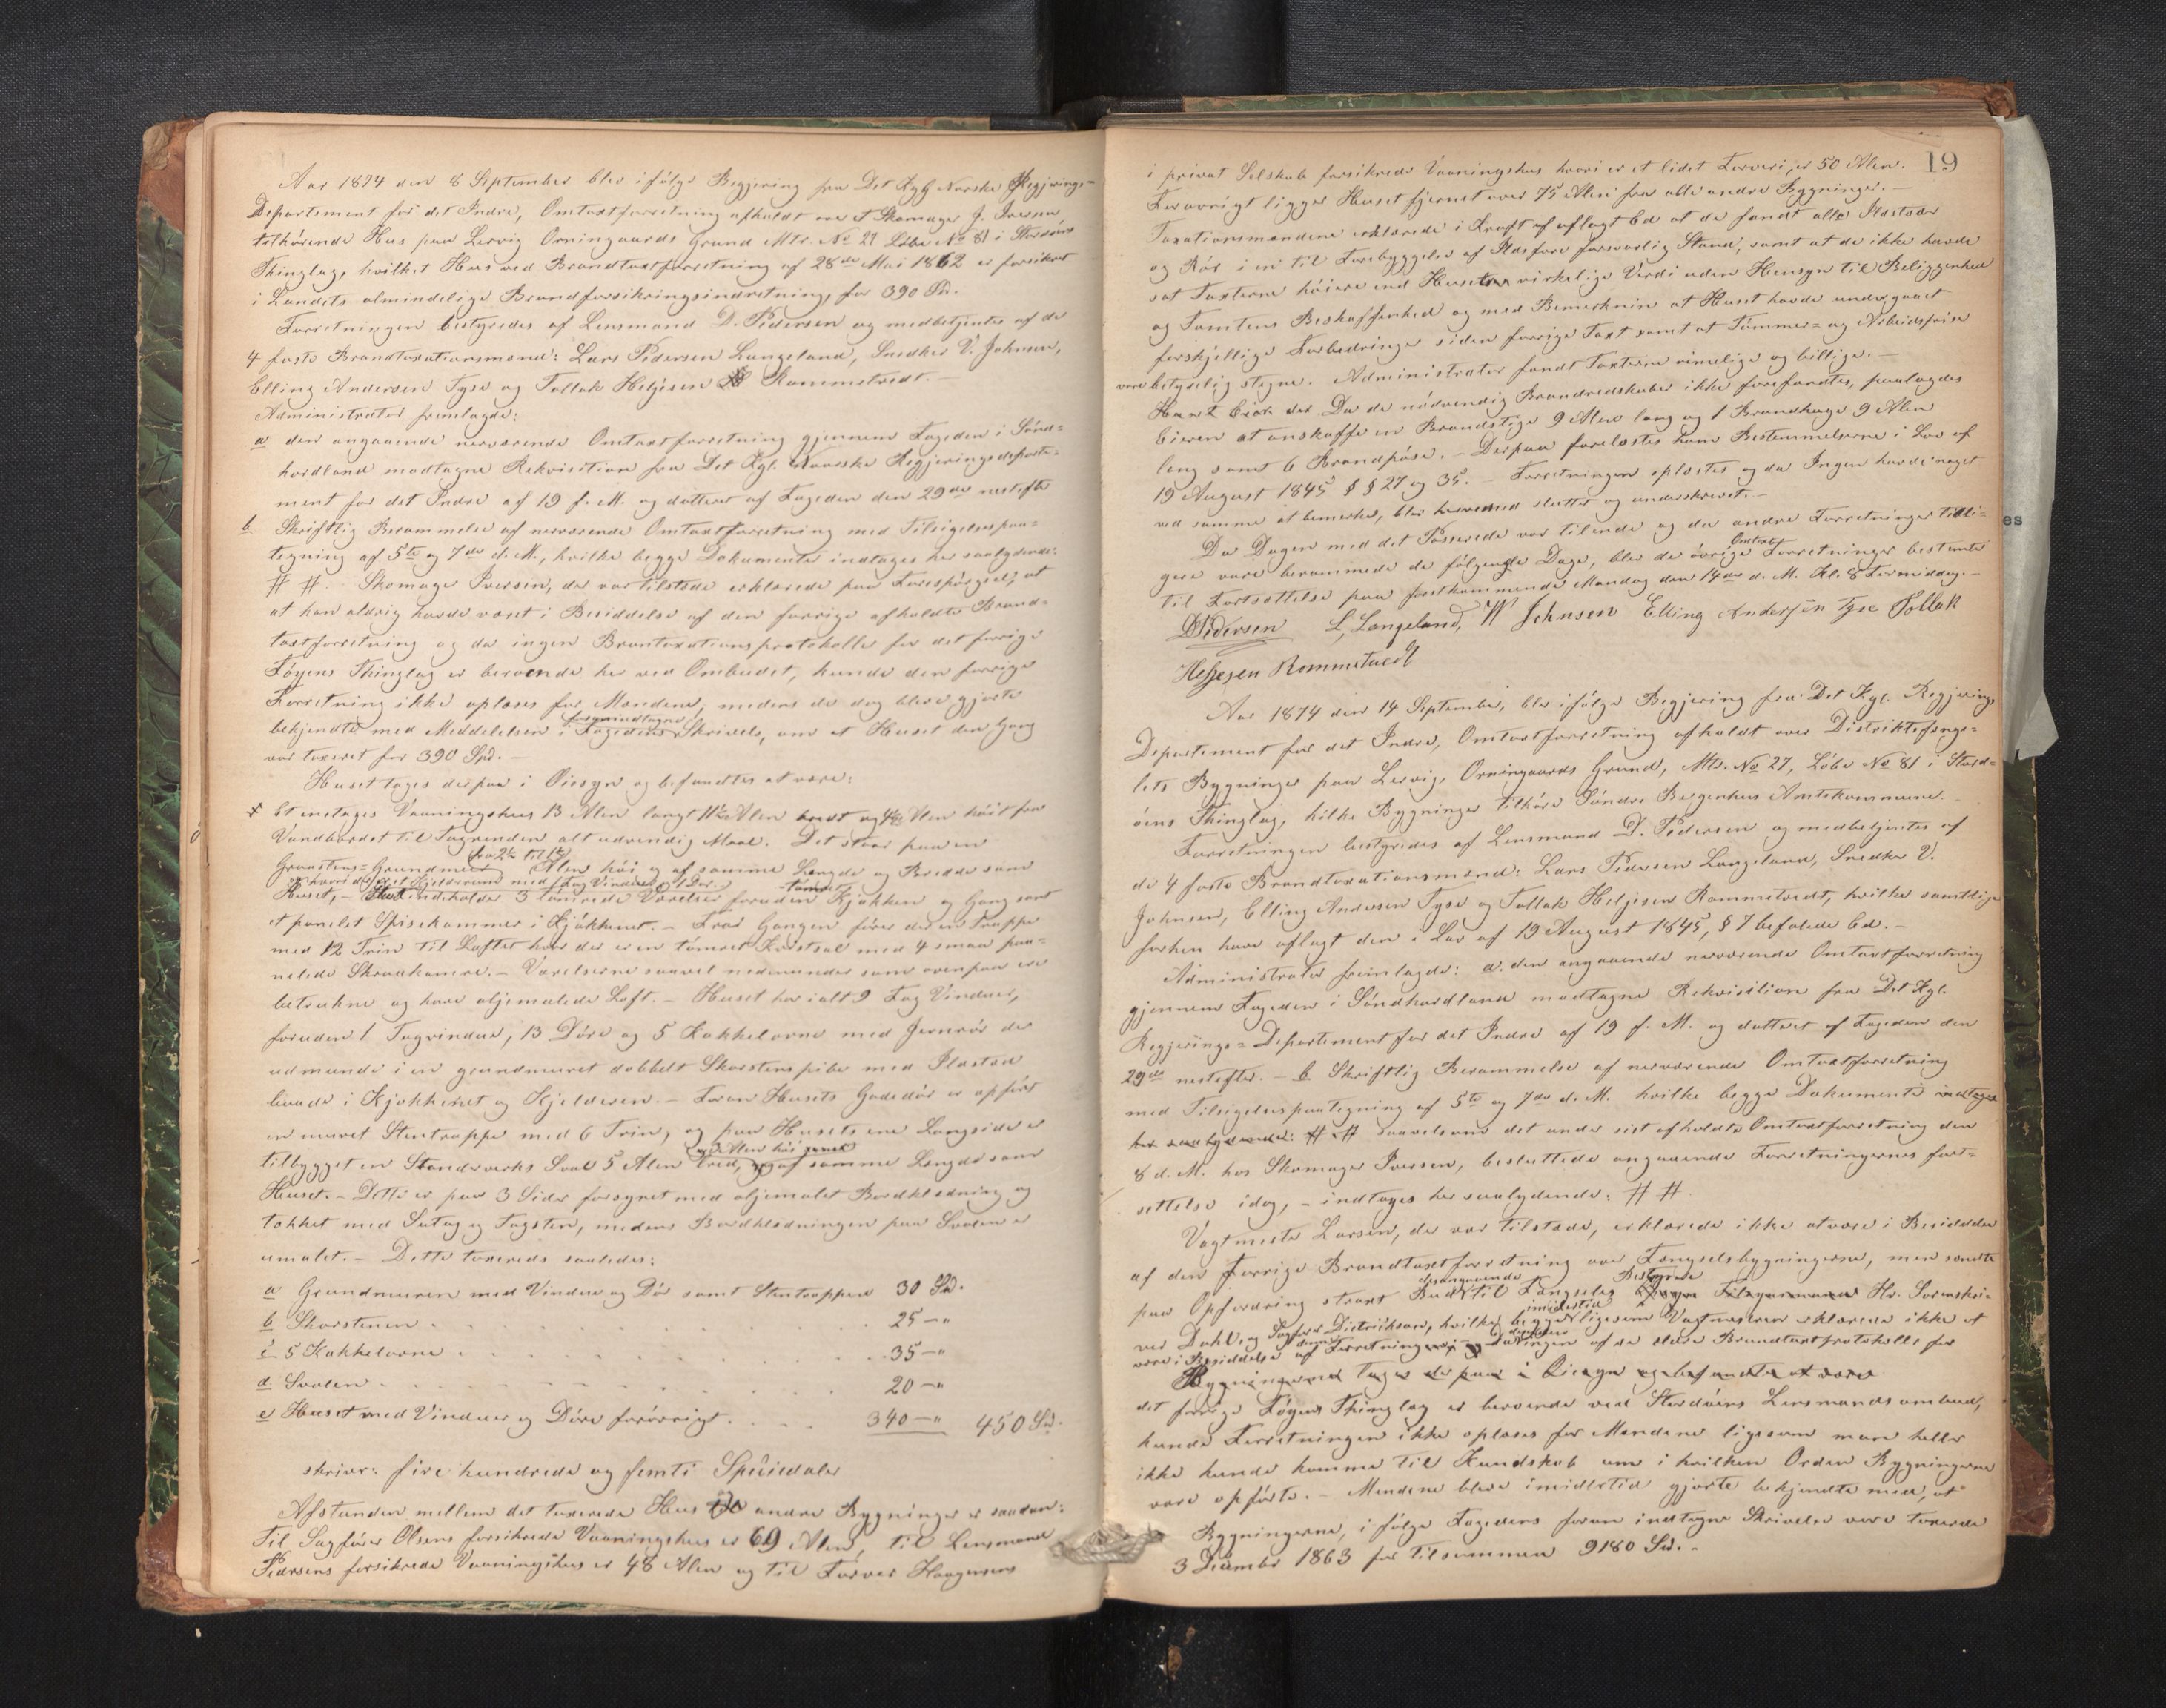 Aar 1874 den 8 September blev ifölge Begjering fra Det Kgl Norske Regjerings-
Departement for det Indre, Omtaxtforretning afholdt over et Skomager J. Iversen
tilhörende Hus paa Lervig Orningaards Grund Mtr. No 27 Löbe No 81 i Stordöens
Thinglag, hvilket Hus ved Brandtaxtforretning af 28de Mai 1862 er forsikret
i Landets almindelige Brandforsikringsindretning for 390 Sp.
Forretningen bestyredes af Lensmand D. Pedersen og medbetjentes af de
4 faste Brandtaxationsmænd: Lars Pedersen Langeland, Snedker V. Johnsen,
Elling Andersen Tyse og Tollak Heljesen Rommetvedt. —
Administrator fremlagde:
a den angaaende nerværende Omtaxtforretning gjennem Fogeden i Sönd-
hordland modtagne Rekvisition fra Det Kgl. Norske Regjeringsdeparte-
ment for det Indre af 19 f. M. og datteret af Fogeden den 29de nestefter
b Skriftlig Berammelse af nerværende Omtaxtforretning med Tilsigelsespaa-
tegning af 5te og 7de d. M., hvilke begge Dokumenter indtages her saalydende:
# #. Skomager Iversen, der var tilstede erklærede paa Forespörgsel, at
at han aldrig havde været i Besiddelse af den forrige afholdte Brand-
taxtforretning og da ingen Brantaxationsprotokolle for det forrige
Föyens Thinglag er beroende her ved Ombudet, kunde den forrige
Forretning ikke oplæses for Mændene, medens de dog bleve gjorte
bekjendte med Meddelelsen i Fogedens foranindtagne Skrivelse, om at Huset den Gang
var taxeret for 390 Spd. —
Huset toges derpaa i Öiesyn og befandtes at være:
Et enetages Vaaningshus 13 Alen langt 11½ Alen bredt og Alen höit fra
Vandbordet til Tagrenden alt udvendig Maal. Det staar paa en
Graastens-Grundmur fra 2½ til 1½ Alen höi og af samme Længde og Bredde som
Huset, og hvori der er et Kjelderrum med Fag Vinduer 1 Dör. — indeholder 3 tömrede Værelser foruden Kjökken og Gang samt
et panelet Spisekammer i Kjökkenet. — Fra Gangen förer der en Trappe
med 12 Trin til Loftet hvor der er en tömret Kvistsal med 4 smaa pan-
nelede Skraakamre. — Værelserne saavel nedenunder som ovenpaa ere
betrukne og have oljemalede Loft. — Huset har ialt 9 Fag Vinduer,
foruden 1 Tagvindue, 13 Döre og 5 Kakkelovne med Jernrör der
udmunde i en grundmuret dobbelt Skorstenspibe med Ildsted
baade i Kjökkenet og Kjelderen. — Foran Husets Gadedör er opfört
en muret Stentrappe med 6 Trin, og paa Husets ene Langside er
tilbygget en Standerværks Sval 5 Alen bred, og af samme Længde som
Huset. — Dette er paa 3 Sider forsynet med oljemalet Bordklædning og
tækket med Sutag og Tagsten, medens Bordklædningen paa Svalen er
umalet. — Dette taxeredes saaledes:
a Grundmuren med Vindue og Dör samt Stentrappen 30 Sp.
b Skorstenen . . . . 25 — "
c 5 Kakkelovne . . . . 35 — "
d Svalen . . . . 20 — "
e Huset med Vinduer og Döre forövrigt . . . . 340 — " 450 Sp.
skriver: fire hundrede og femti Speciedaler
Afstanden mellem det taxerede Hus og andre Bygninger er saadan:
Til Sagförer Olsens forsikrede Vaaningshus er 69 Alen, til Lensmand
Pedersens forsikrede Vaaningshus er 48 Alen og til Farver Haagensens
19
i privat Selskab forsikrede Vaaningshus hvori er et lidet Farveri, er 50 Alen.
Forövrigt ligger Huset fjernet over 75 Alen fra alle andre Bygninger. —
Taxationsmændene erklærede i Kraft af aflagt Ed at de fandt alle Ildsteder
og Rör i en til Forebyggelse af Ildsfare forsvarlig Stand, samt at de ikke havde
sat Taxterne höiere end Husets virkelige Verdi uden Hensyn til Beliggenhed
og Tomtens Beskaffenhed og med Bemerkning at Huset havde undergaaet
forskjellige Forbedringer siden forrige Taxt samt at Tömmer- og Arbeidspriser
vare betydelig stegne. Administrator fandt Taxterne rimelige og billige. —
Da de nödvendig Brandredskaber ikke forefandtes, paalagdes
Eieren at anskaffe en Brandstige 9 Alen lang og 1 Brandhage 9 Alen
lang samt 6 Brandpöse. — Derpaa forelæstes ham Bestemmelserne i Lov af
19 August 1845 § § 27 og 35. — Forretningen oplæstes og da Ingen havde noget
ved samme at bemerke, blev hermed sluttet og underskrevet. —
Da Dagen med det Passerede var tilende og da andre Forretninger tidli-
gere vare berammede de fölgende Dage, blev de övrige Omtaxt Forretninger bestemte
til Fortsættelse paa förstkommende Mandag den 14de d. M. Kl. 8 Formiddag. —
D Pedersen L, Langeland, W Johnsen Elling Andersen Tyse Tollak
Heljesen Rommetvedt
Aar 1874 den 14 September, blev ifölge Begjering fra Det Kgl. Regjerings
Departement for det Indre, Omtaxtforretning afholdt over Distriktsfængs-
lets Bygninger paa Lervig, Orningaards Grund, Mtr. No 27, Löbe No 81 i Stord-
öens Thinglag, hvilke Bygninger tilhöre Söndre Bergenhus Amtskommune.
Forretningen bestyredes af Lensmand D. Pedersen og medbetjentes af
de 4 faste Brandtaxationsmænd: Lars Pedersen Langeland, Snedker V.
Johnsen, Elling Andersen Tyse og Tollak Heljesen Rommetvedt, hvilke samtlige
forhen have aflagt den i Lov af 19 August 1845, § 7 befalede Ed. —
Administrator fremlagde: a. den angaaende nerværende Omtaxtforretning
gjennem Fogeden i Söndhordland modtagne Rekvisition fra Det Kgl.
Regjerings-Departement for det Indre af 19 f. M. og datteret af Fogeden den
29de nestefter. — b Skriftlig Berammelse af nerværende Omtaxtforretning
med Tilsigelsespaategning af 5te og 7de d. M. hvilke begge Dokumenter indtages
her saalydende: # # saavelsom det under sist afholdte Omtaxtforretning den
8 d. M. hos Skomager Iversen, besluttede angaaende Forretningernes fort-
settelse idag, — indtages her saalydende: # #.
Vagtmester Larsen, der var tilstede, erklærede ikke at være i Besiddelse
af den forrige Brandtaxtforretning over Fængselsbygningerne, men sendte
paa Opfordring strax Bud desangaaende til Fængslets Bestyrere Hr. Sorenskri-
ver Dahl, og Sagförer Dietrichson, hvilke begge imidlertid ligesom Vagtmesteren erklærede ikke at
være i Besiddelse af Forretningen og da ingen af de eldre Brandtaxtprotokolle for
Bygningerne toges derpaa i Öiesyn og befandtes at være
det forrige Föyens Thinglag er beroende ved Stordöens Lensmandsombud,
kunde Forretningen ikke oplæses for Mændene ligesom man heller
ikke kunde komme til Kundskab om i hvilken Orden Bygningerne
vare opförte. — Mændene bleve imidlertid gjorte bekjendte med, at
Bygningerne, i fölge Fogedens foran indtagne Skrivelse vare taxerede
3 December 1863 for tilsammen 9180 Spd. —
es